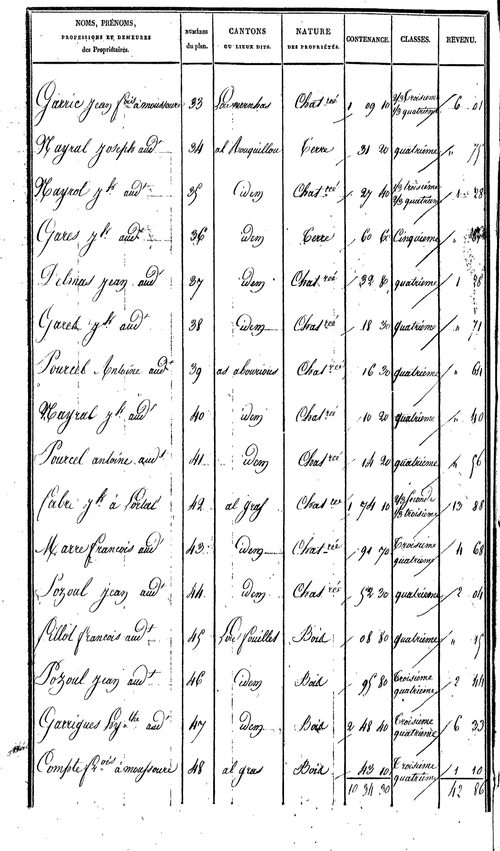 NOMS, PRÉNOMS, PROFESSIONS ET DEMEURES des Propriétaires. NUMÉROS du plan. CANTONS OU LIEUX DITS. NATURE DES PROPRIÉTÉS. CONTENANCE. CLASSES. REVENU.
Garric jean f.ois à moussoure 33 Chat.ré 1 09 10 2/3 Troisieme 1/3 quatrieme 6 01
Mayral joseph aud.t 34 al Rouquillou Terre 31 20 quatrieme " 75
Mayrol j.ph aud.t 35 idem Chat.ré 27 40 1/3 troisieme 2/3 quatrieme 1 28
Gares j.ph aud.t 36 idem Terre 60 60 Cinquieme "
Delmas jean aud.t 37 idem Chat.ré 32 80 quatrieme 1 28
Gares j.ph aud.t 38 idem Chat.ré 18 30 quatrieme " 71
Pourcel Antoine aud.t 39 as abourious Chat.ré 16 30 quatrieme " 64
Mayral j.ph aud.t 40 idem Chat.ré 10 20 quatrieme " 40
Pourcel antoine aud.t 41 idem Chat.ré 14 20 quatrieme " 56
Cabre j.ph à 42 al gras Chat.ré 1 74 10 2/3 seconde 1/3 troisieme 13 88
Marre francois aud.t 43 idem Chat.ré 91 70 Troisieme quatrieme 4 68
Pozoul jean aud.t 44 idem Chat.ré 52 30 quatrieme 2 04
francois aud.t 45 Lou fouillet Bois 08 80 quatrieme " 15
Pozoul jean aud.t 46 idem Bois 95 80 Troisieme quatrieme 2 44
Garrigues aud.t 47 idem Bois 2 48 40 Troisieme quatrieme 6 33
Compte f.ois à moussoure 48 al gras Bois 43 10 Troisieme quatrieme 1 10
10 34 30 42 86